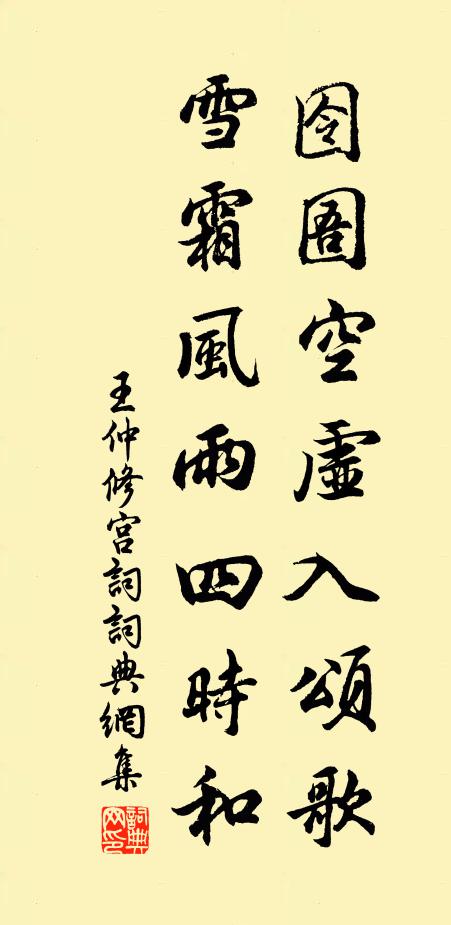 囹圄空虛入頌歌
雪霜風雨四時和
王仲修宫詞詞典網集
詞典网印